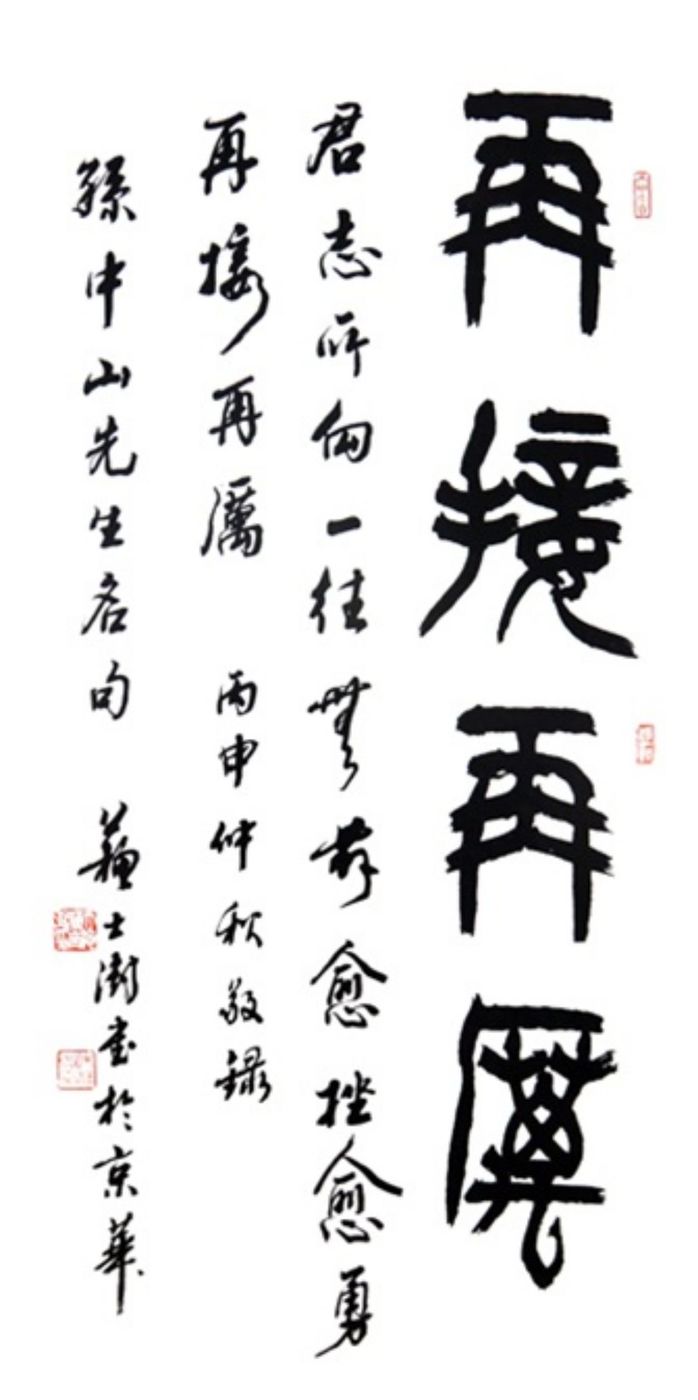 再接再厲
君志所向一往無前愈挫愈勇
再接再厲 丙申仲秋敬錄
孫中山先生名句 蘇士澍書於京華